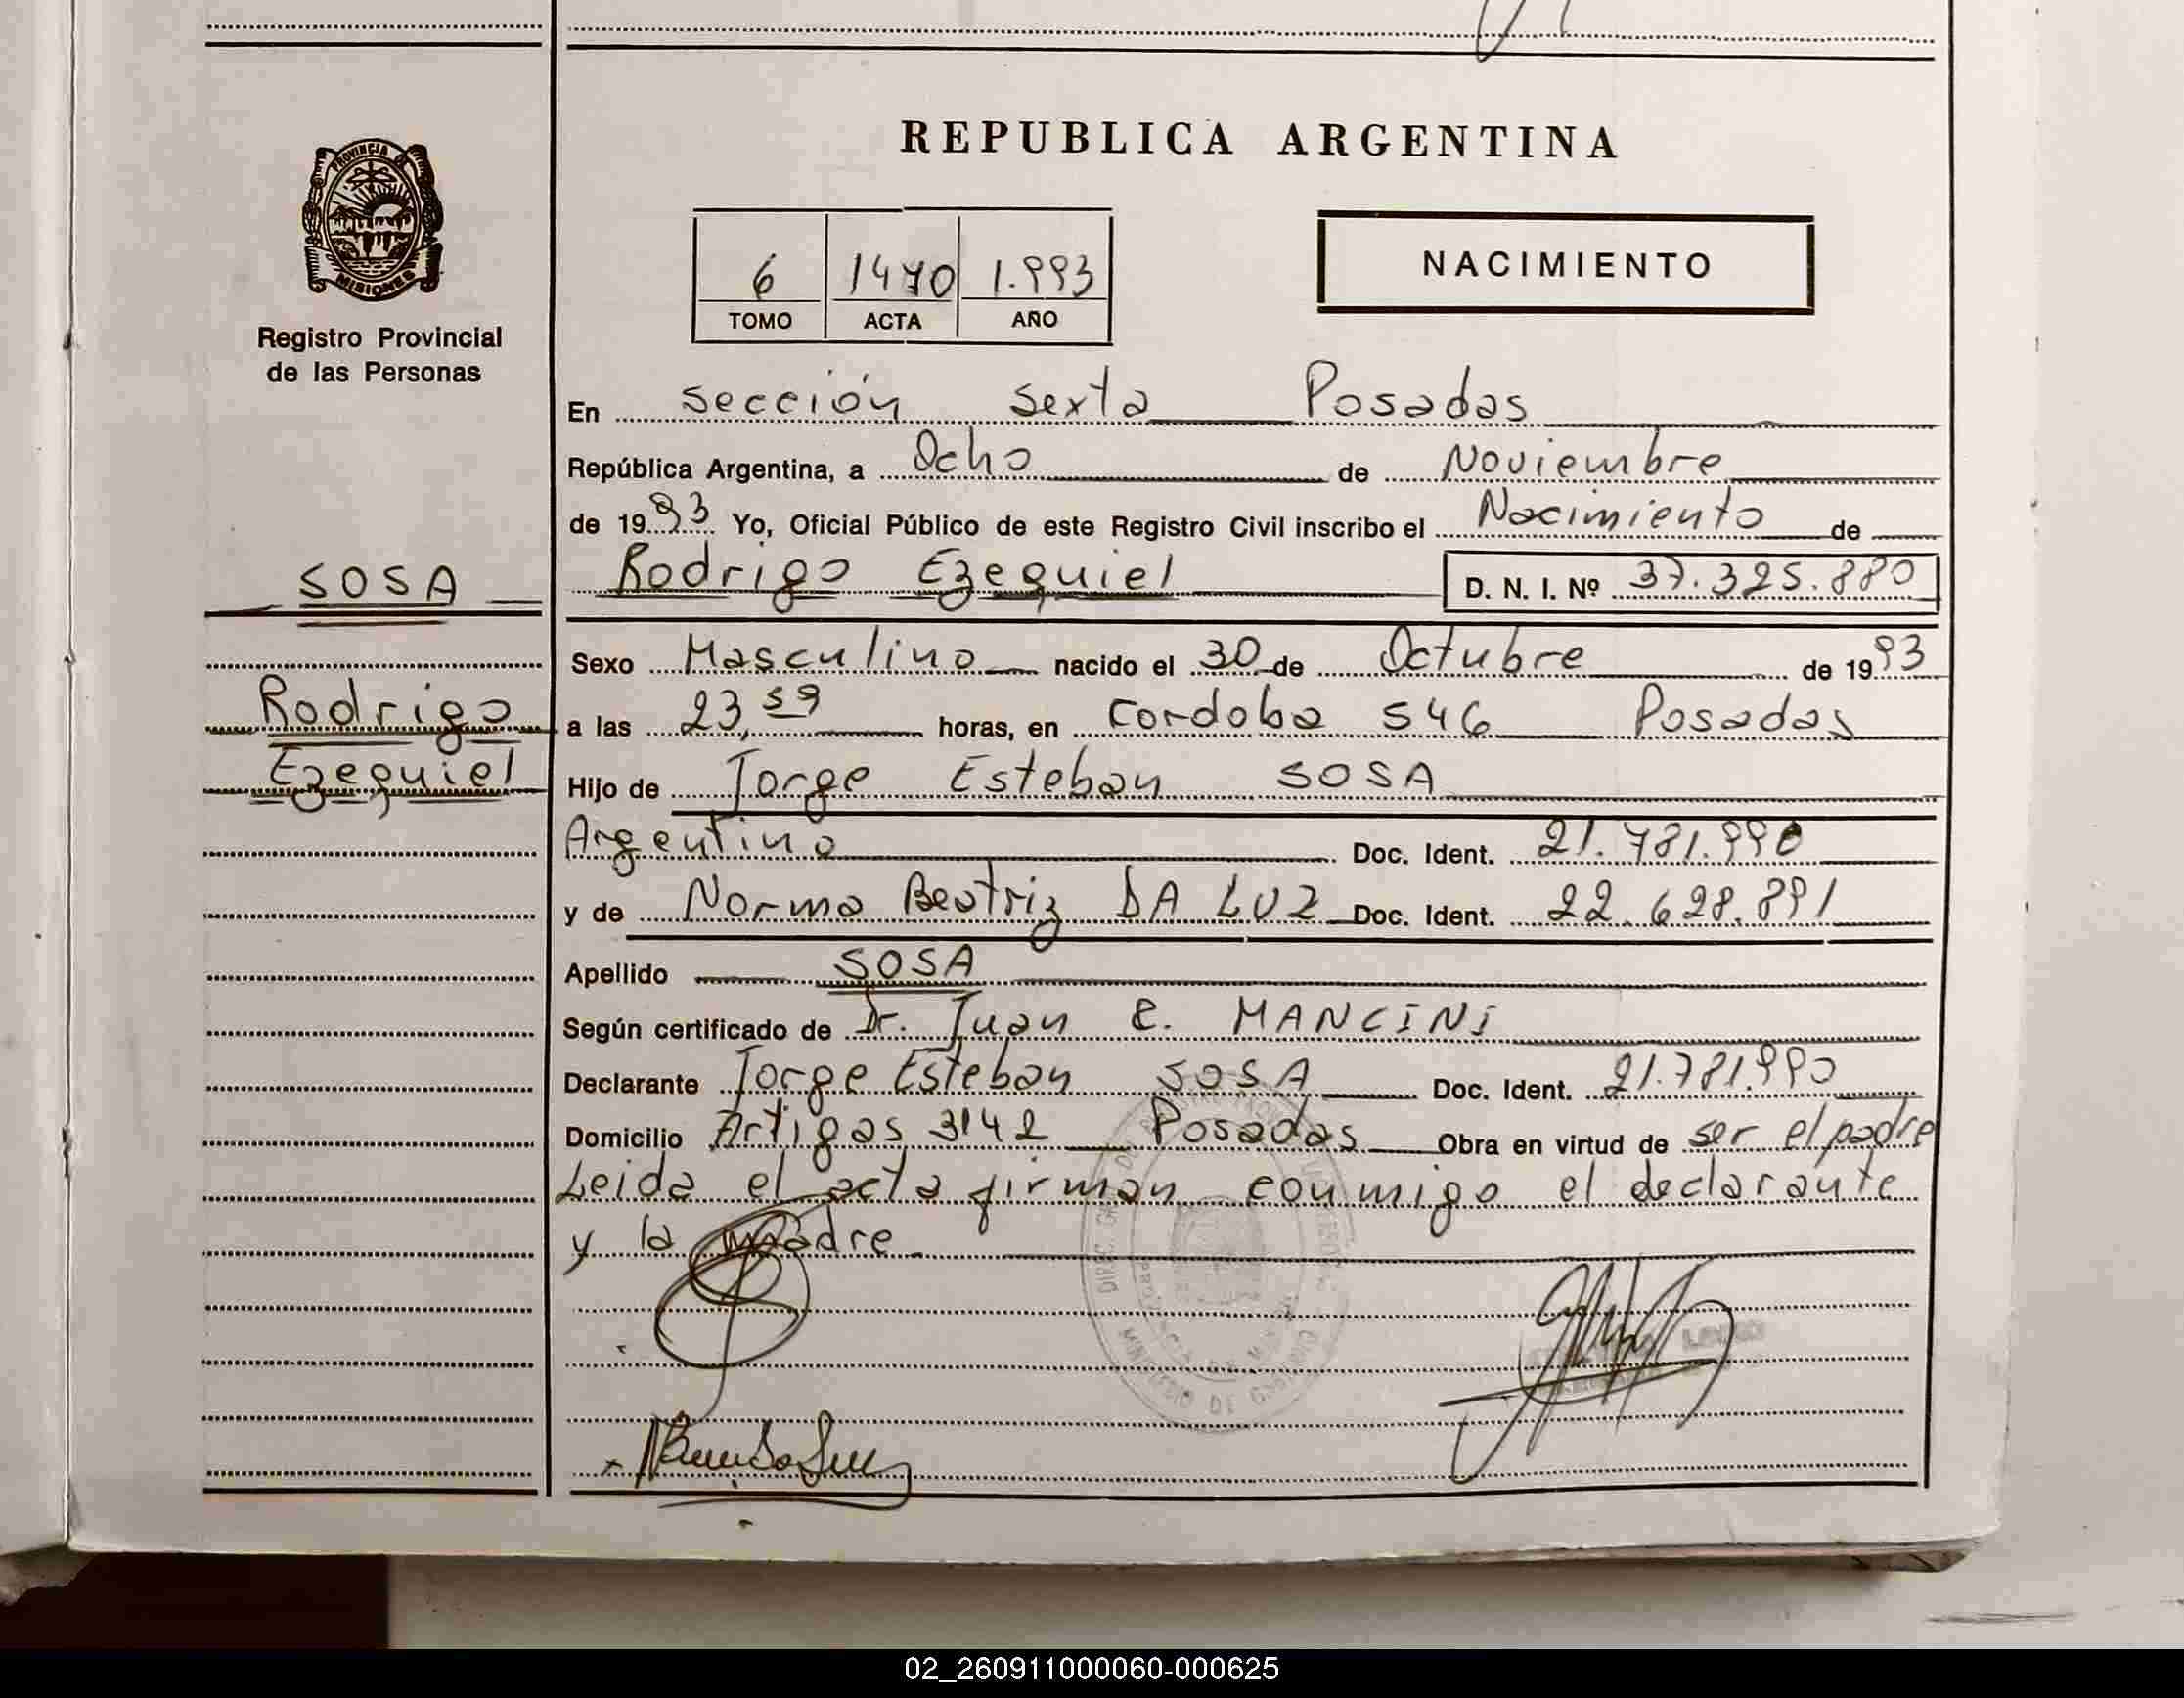 REPUBLICA ARGENTINA
PROVINCIA DE
MISIONES
Registro Provincial
de las Personas
6 1470 1.993
TOMO ACTA AÑO
NACIMIENTO
En sección sexta Posadas
República Argentina, a Ocho de Noviembre
de 1993 Yo, Oficial Público de este Registro Civil inscribo el Nacimiento de
SOSA
Rodrigo Ezequiel D. N. I. Nº 37.325.880
Sexo Masculino nacido el 30 de Octubre de 1993
Rodrigo
Ezequiel
a las 23,59 horas, en Cordoba 546 Posadas
Hijo de Jorge Esteban SOSA
Argentino Doc. Ident. 21.781.990
y de Norma Beatriz DA LUZ Doc. Ident. 22.628.891
Apellido SOSA
Según certificado de Dr. Juan E. MANCINI
Declarante Jorge Esteban SOSA Doc. Ident. 21.781.990
Domicilio Artigas 3142 Posadas Obra en virtud de ser el padre
Leida el acta firman conmigo el declarante
y la madre.
MINISTERIO DE GOBIERNO
02_260911000060-000625